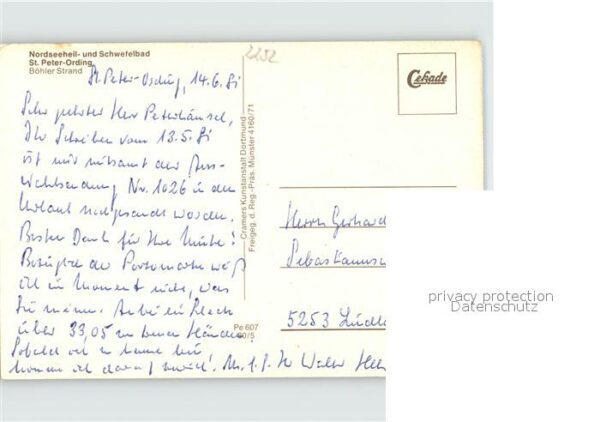 Nordseeheil- und Schwefelbad
St. Peter-Ording
Böhler Strand
2252
Cekade
St. Peter-Ording, 14.6.81
Sehr geehrter Herr Peterhänsel,
Ihr Schreiben vom 13.5.81
ist mir mitsamt der Aus-
wahlsendung Nr. 1026 in den
Urlaub nachgesandt worden.
Besten Dank für Ihre Mühe!
Bezüglich der Portomarke weiß
ich im Moment nicht, was
Sie meinen. Anbei ein Scheck
über 33,05 zu Ihren Händen.
Sobald ich zu Hause bin
komme ich darauf zurück! Ihr Walter
Cramers Kunstanstalt Dortmund
Freigeg. d. Reg.-Präs. Münster 4160/71
Pe 607
60/5
Herrn Gerhard
5253 Lindla
privacy protection
Datenschutz